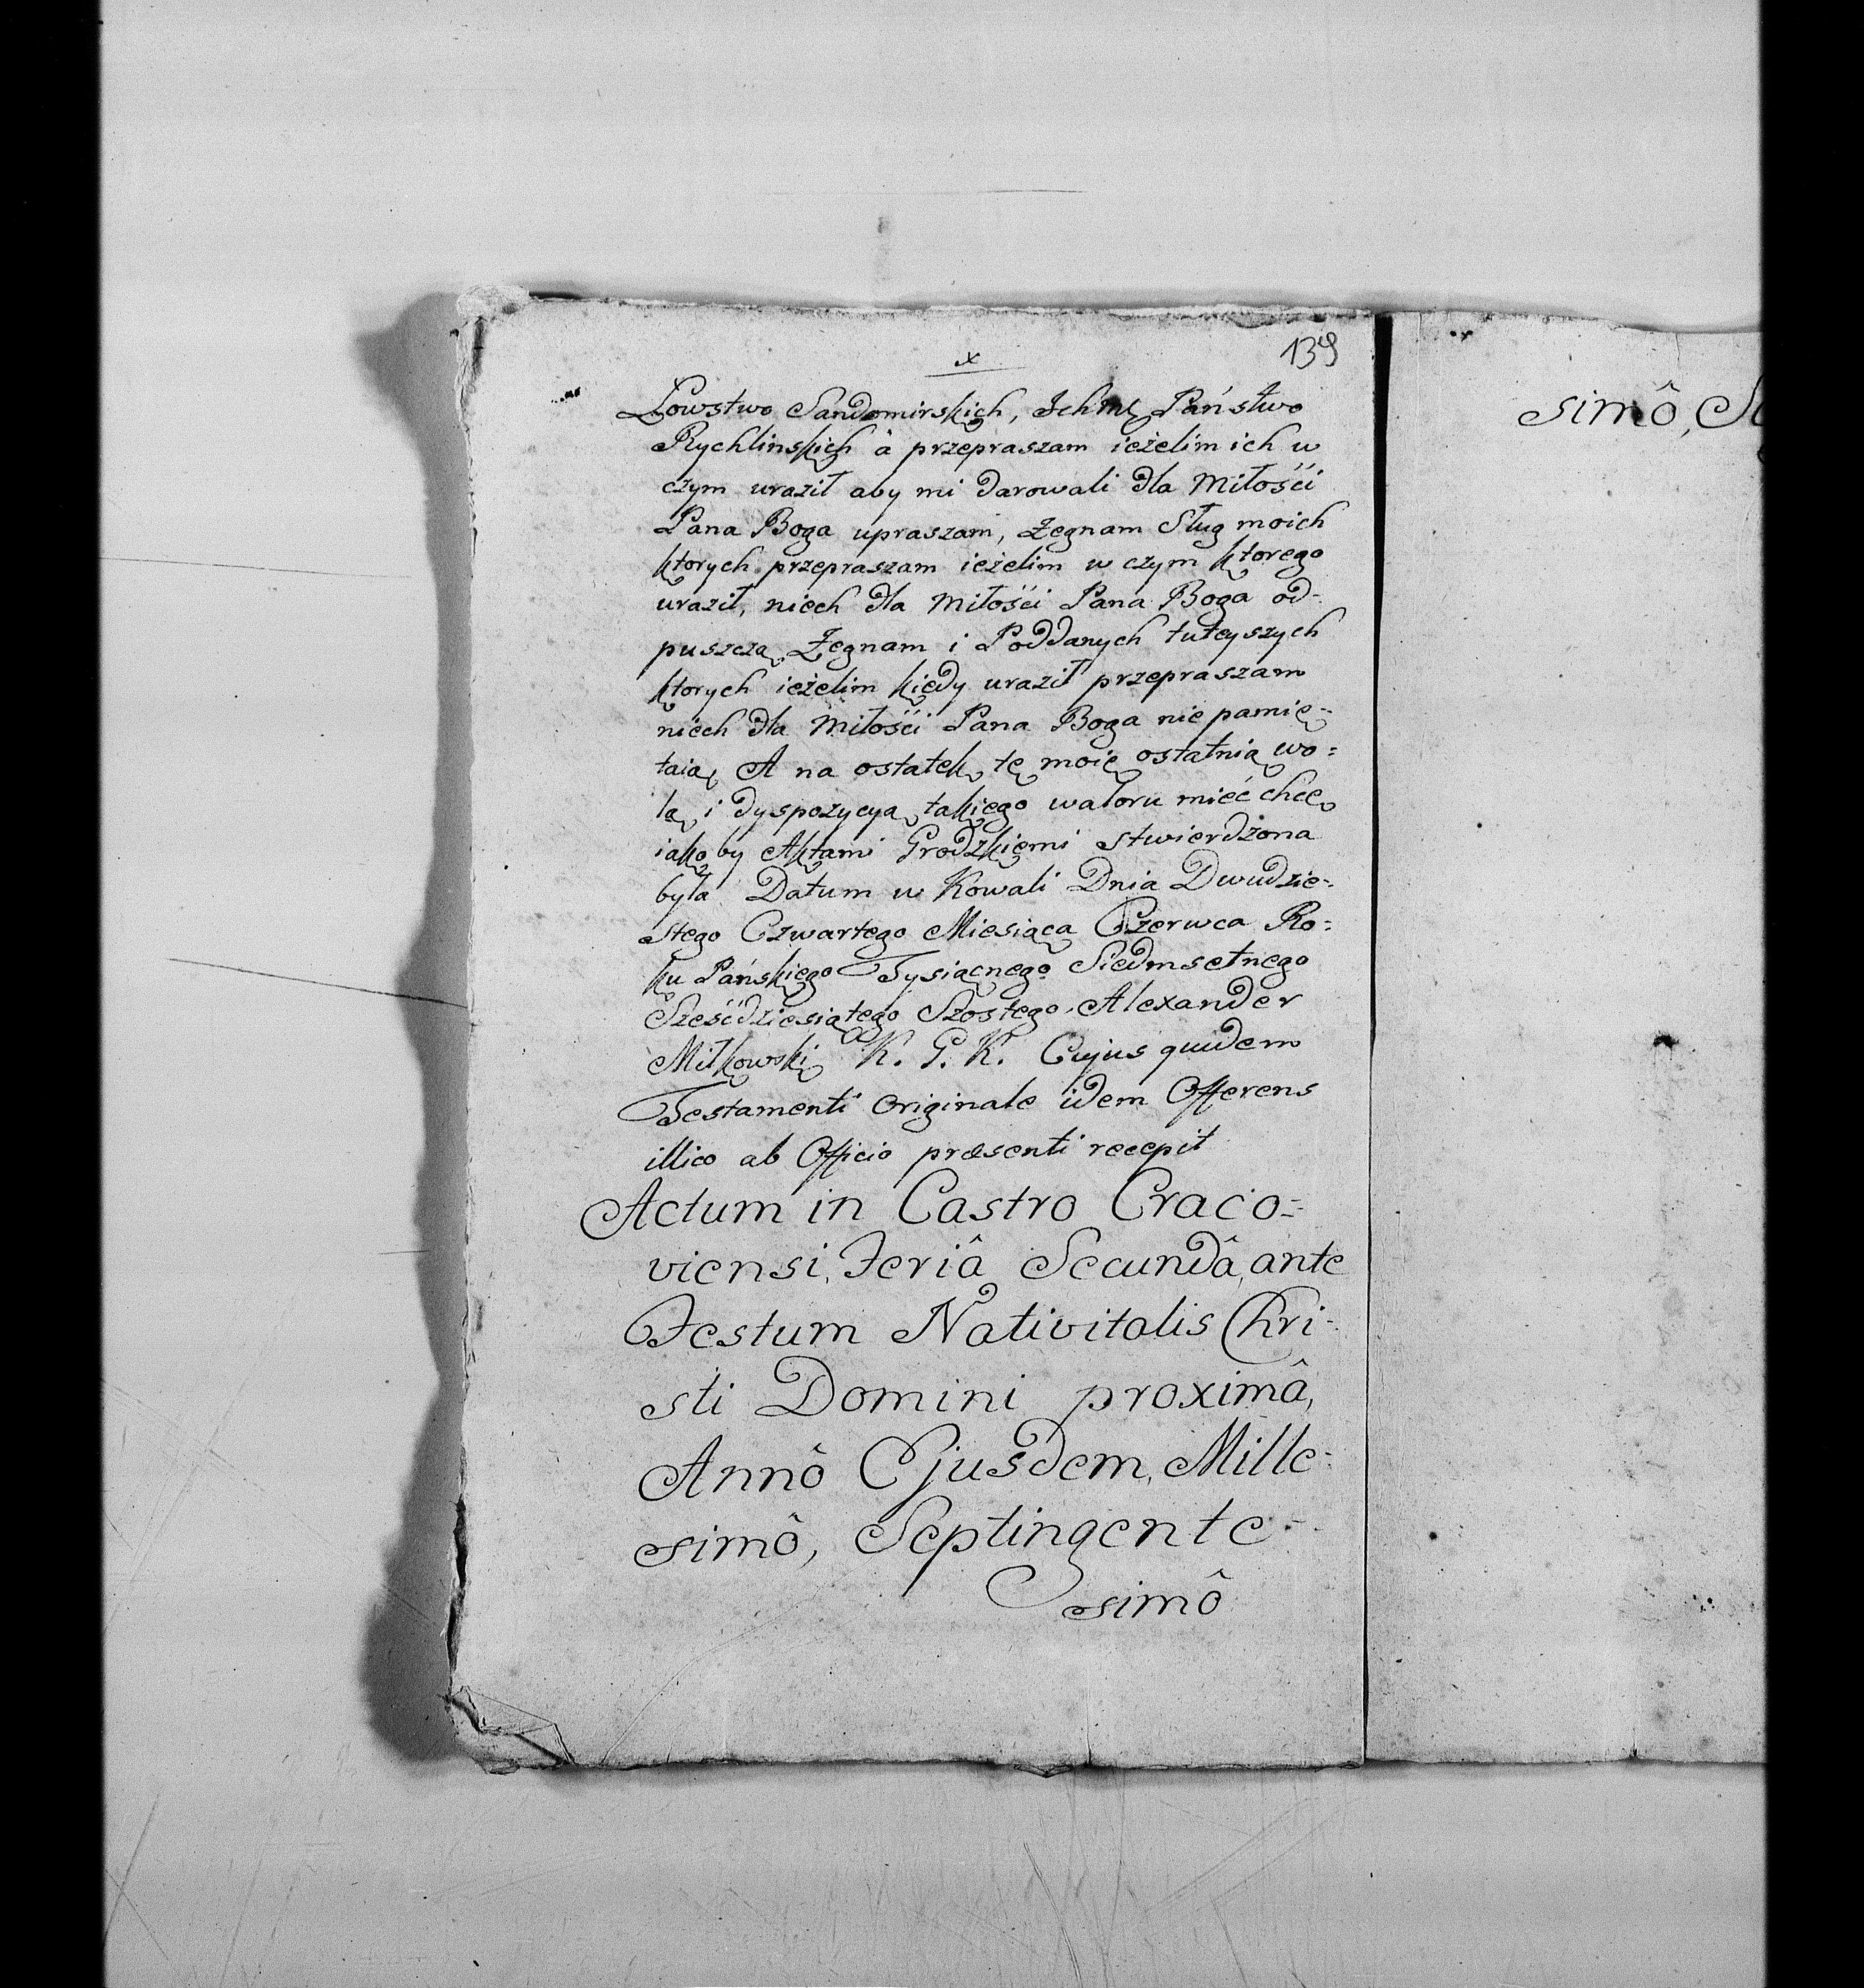 x
139
Łowstwo Sandomirskich, Ichmć Państwo
Rychlinskich â przepraszam ieżelim ich w
czym uraził aby mi darowali dla Miłośći
Pana Boga upraszam, Żegnam Sług moich
ktorych przepraszam ieżelim w czym ktorego
uraził, niech dla Miłośći Pana Boga od-
puszczą Żegnam i Poddanych tuteyszych
ktorych ieżelim kiedy uraził przepraszam
niech dla Miłośći Pana Boga nie pamię-
taią A na ostatek tę moię ostatnią wo=
lą i dyspozycyą takiego waloru mieć chcę
iako by Aktami Grodzkiemi stwierdzona
była Datum w Kowali Dnia Dwudzie-
stego Czwartego Miesiąca Czerwca Ro=
ku Pańskiego Tysiącnego Siedmsetnego
Sześćdziesiątego Szostego. Alexander
Miłkowski K. G. K. Cujus quidem
Testamenti Originale idem Offerens
illico ab Officio præsenti recepit
Actum in Castro Craco=
viensi, Feriâ Secundâ, ante
Festum Nativitatis Chri-
sti Domini proximâ,
Annô Ejusdem, Mille-
simô, Septingente-
simô
simô,